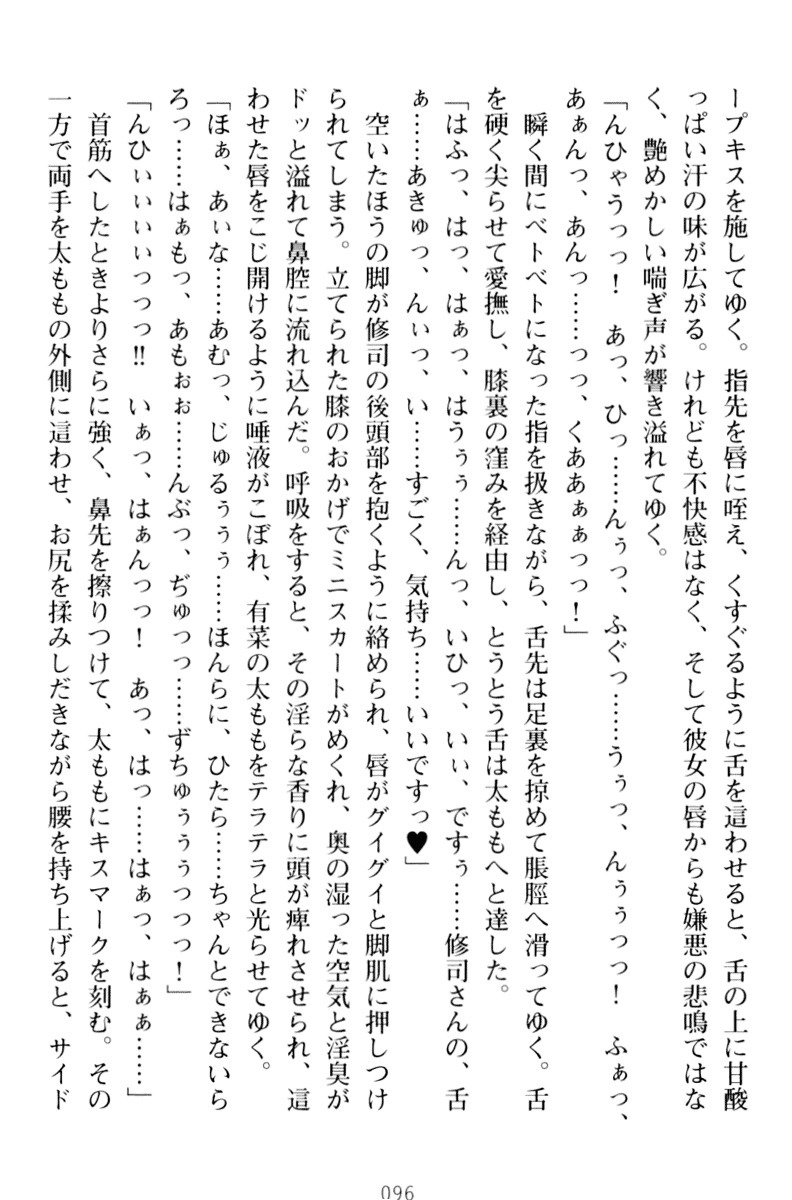 ープキスを施してゆく。指先を唇に咥え、くすぐるように舌を這わせると、舌の上に甘酸
っぱい汗の味が広がる。けれども不快感はなく、そして彼女の唇からも嫌悪の悲鳴ではな
く、艶めかしい喘ぎ声が響き溢れてゆく。
「んひゃうっっ！　あっ、ひっ……んぅっ、ふぐっ……うぅっ、んぅぅっっ！　ふぁっ、
あぁんっ、あんっ……っっ、くああぁぁっっ！」
瞬く間にベトベトになった指を扱きながら、舌先は足裏を掠めて脹脛へ滑ってゆく。舌
を硬く尖らせて愛撫し、膝裏の窪みを経由し、とうとう舌は太ももへと達した。
「はふっ、はっ、はぁっ、はうぅぅ……んっ、いひっ、いぃ、ですぅ……修司さんの、舌
ぁ……あきゅっ、んぃっ、い……すごく、気持ち……いいですっ♥」
空いたほうの脚が修司の後頭部を抱くように絡められ、唇がグイグイと脚肌に押しつけ
られてしまう。立てられた膝のおかげでミニスカートがめくれ、奥の湿った空気と淫臭が
ドッと溢れて鼻腔に流れ込んだ。呼吸をすると、その淫らな香りに頭が痺れさせられ、這
わせた唇をこじ開けるように唾液がこぼれ、有菜の太ももをテラテラと光らせてゆく。
「ほぁ、あぃな……あむっ、じゅるぅぅぅ……ほんらに、ひたら……ちゃんとできないら
ろっ……はぁもっ、あもぉぉ……んぶっ、ぢゅっっ……ずちゅぅぅぅっっっ！」
「んひぃぃぃぃっっっ‼　いぁっ、はぁんっっ！　あっ、はっ……はぁっ、はぁぁ……」
首筋へしたときよりさらに強く、鼻先を擦りつけて、太ももにキスマークを刻む。その
一方で両手を太ももの外側に這わせ、お尻を揉みしだきながら腰を持ち上げると、サイド
096